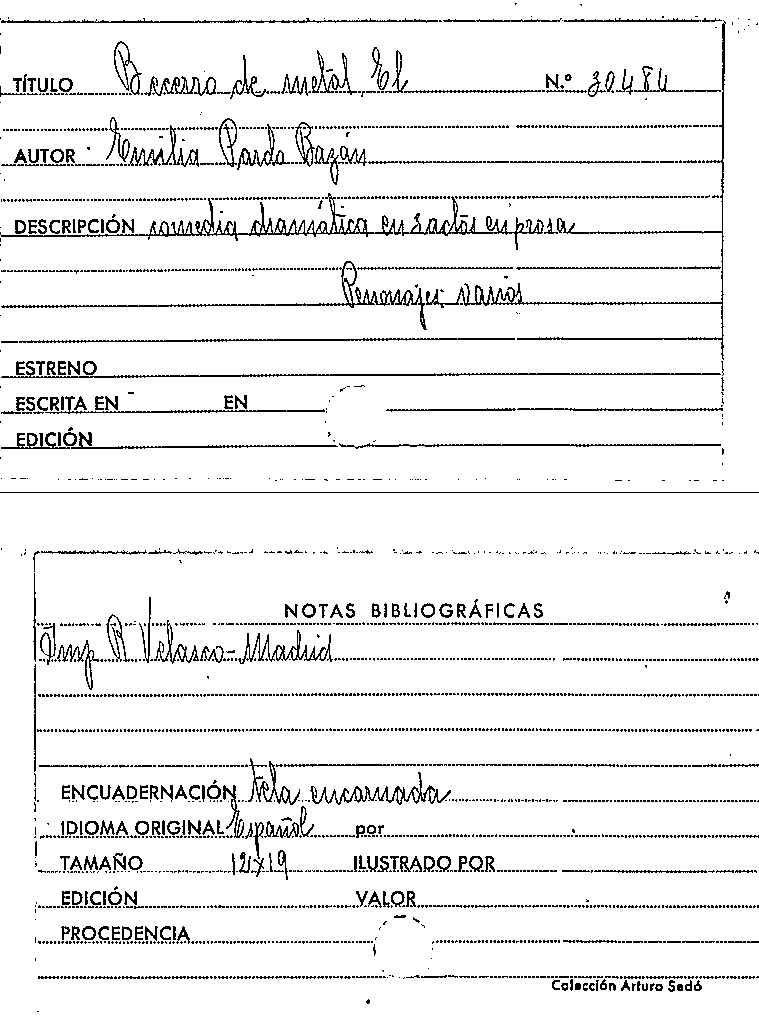 TÍTULO Becerro de metal, El N.º 30484
AUTOR Emilia Pardo Bazán
DESCRIPCIÓN comedia dramática en 3 actos en prosa
Personajes: varios
ESTRENO
ESCRITA EN EN
EDICIÓN
NOTAS BIBLIOGRÁFICAS
Imp R Velasco-Madrid
ENCUADERNACIÓN tela encarnada
IDIOMA ORIGINAL Español por
TAMAÑO 12x19 ILUSTRADO POR
EDICIÓN VALOR
PROCEDENCIA
Colección Arturo Sedó